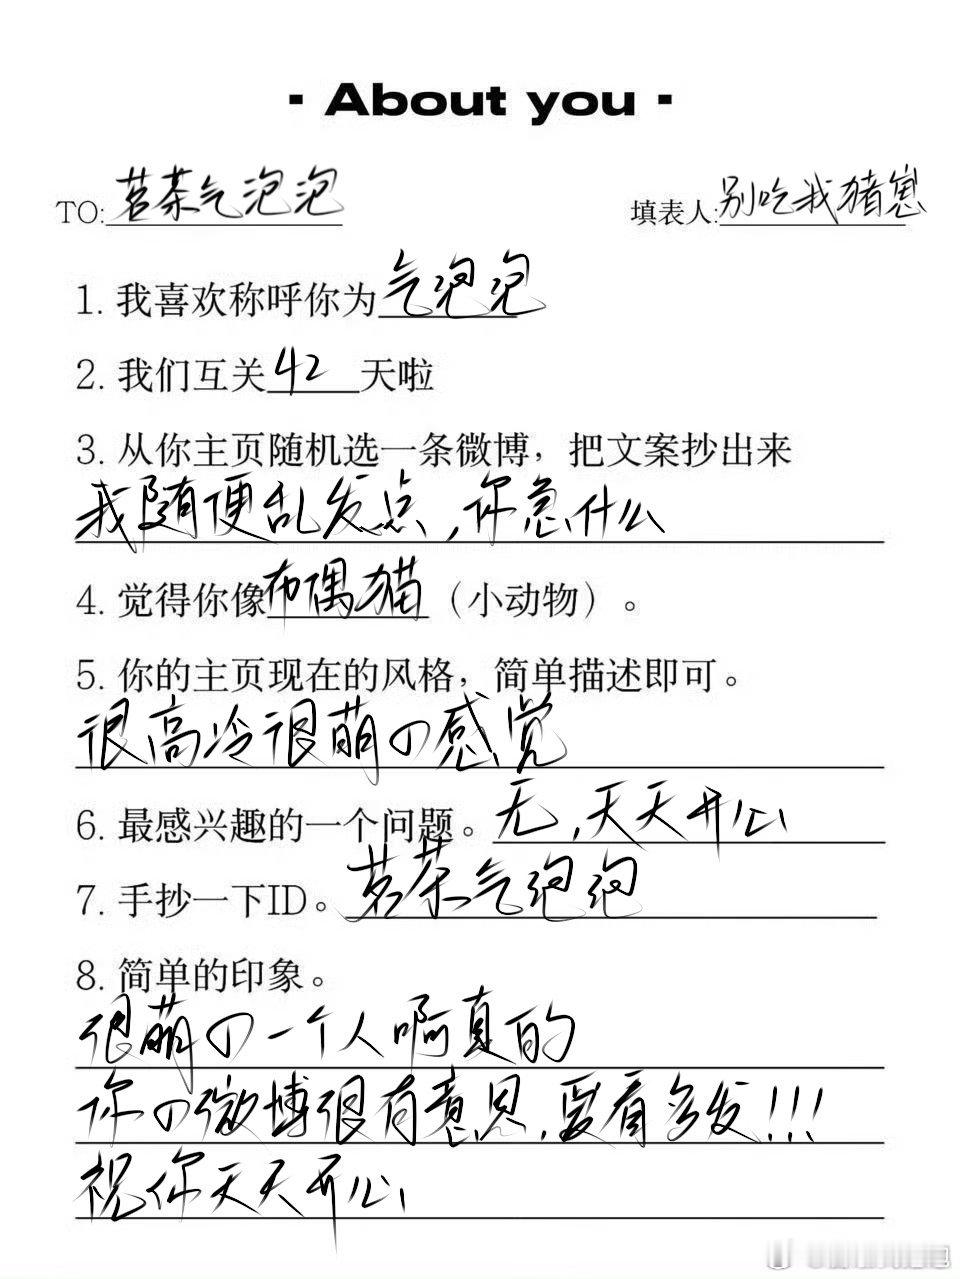 - About you -
TO: 茗茶气泡泡 填表人: 别吃我猪崽
1. 我喜欢称呼你为气泡泡
2. 我们互关42天啦
3. 从你主页随机选一条微博，把文案抄出来
我随便乱发点，你急什么
4. 觉得你像布偶猫（小动物）。
5. 你的主页现在的风格，简单描述即可。
很高冷很萌の感觉
6. 最感兴趣的一个问题。无，天天开心
7. 手抄一下ID。茗茶气泡泡
8. 简单的印象。
很萌の一个人啊真的
你の微博很有意思，爱看多发!!!
祝你天天开心